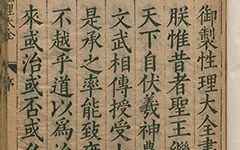 御製性理大全書
朕惟昔者聖王繼
天下自伏羲神農
文武相傳授受上
是承之率能致雍
不越乎道以為治
來或治或否或久
理大全
序